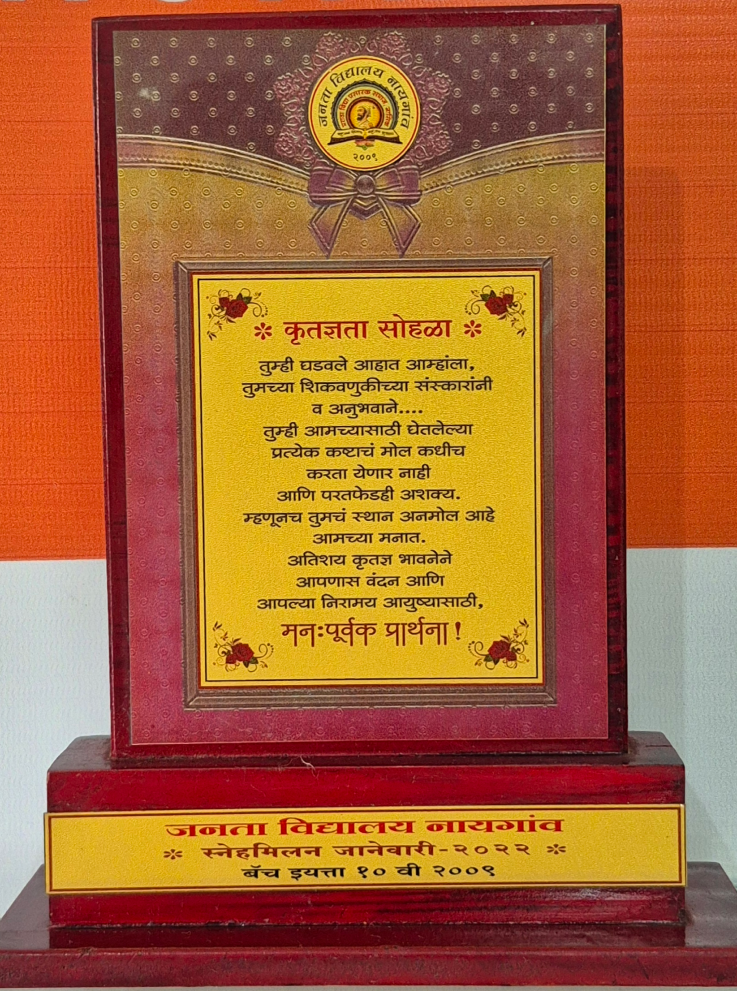 जनता विद्यालय नायगांव
२००९
* कृतज्ञता सोहळा *
तुम्ही घडवले आहात आम्हांला,
तुमच्या शिकवणुकीच्या संस्कारांनी
व अनुभवाने....
तुम्ही आमच्यासाठी घेतलेल्या
प्रत्येक कष्टाचं मोल कधीच
करता येणार नाही
आणि परतफेडही अशक्य.
म्हणूनच तुमचं स्थान अनमोल आहे
आमच्या मनात.
अतिशय कृतज्ञ भावनेने
आपणास वंदन आणि
आपल्या निरामय आयुष्यासाठी,
मनःपूर्वक प्रार्थना!
जनता विद्यालय नायगांव
* स्नेहमिलन जानेवारी-२०२२ *
बॅच इयत्ता १० वी २००९